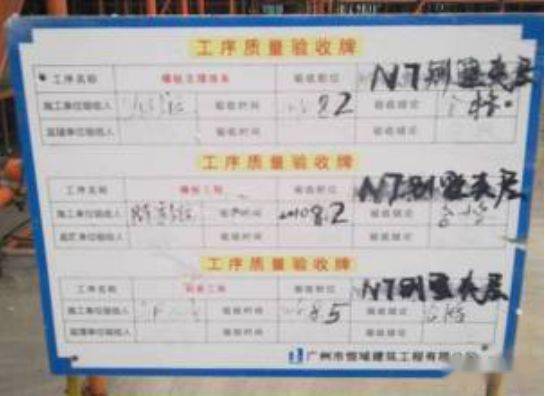 工序质量验收牌
工序名称 模板支撑体系 验收部位 N7别墅夹层
施工单位验收人 验收时间 8.2 验收结论 合格
监理单位验收人 验收时间 验收结论
工序质量验收牌
工序名称 模板工程 验收部位 N7别墅夹层
施工单位验收人 验收时间 8.2 验收结论 合格
监理单位验收人 验收时间 验收结论
工序质量验收牌
工序名称 钢筋工程 验收部位 N7别墅夹层
施工单位验收人 验收时间 8.5 验收结论 合格
监理单位验收人 验收时间 验收结论
广州市恒域建筑工程有限公司